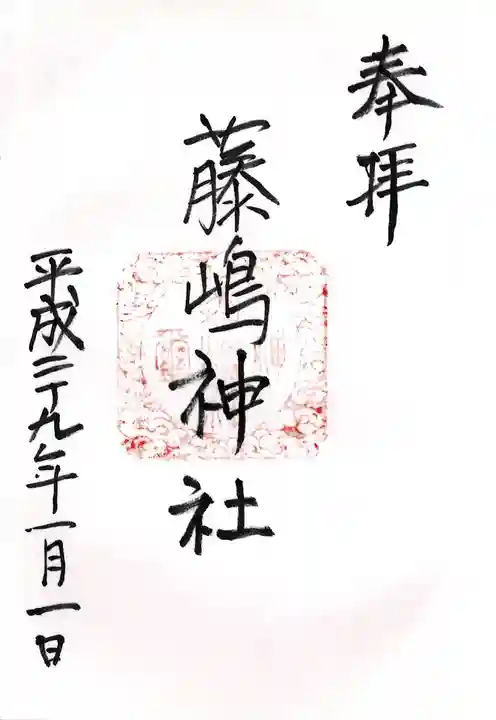 奉拝
藤嶋神社
平成二十九年一月一日